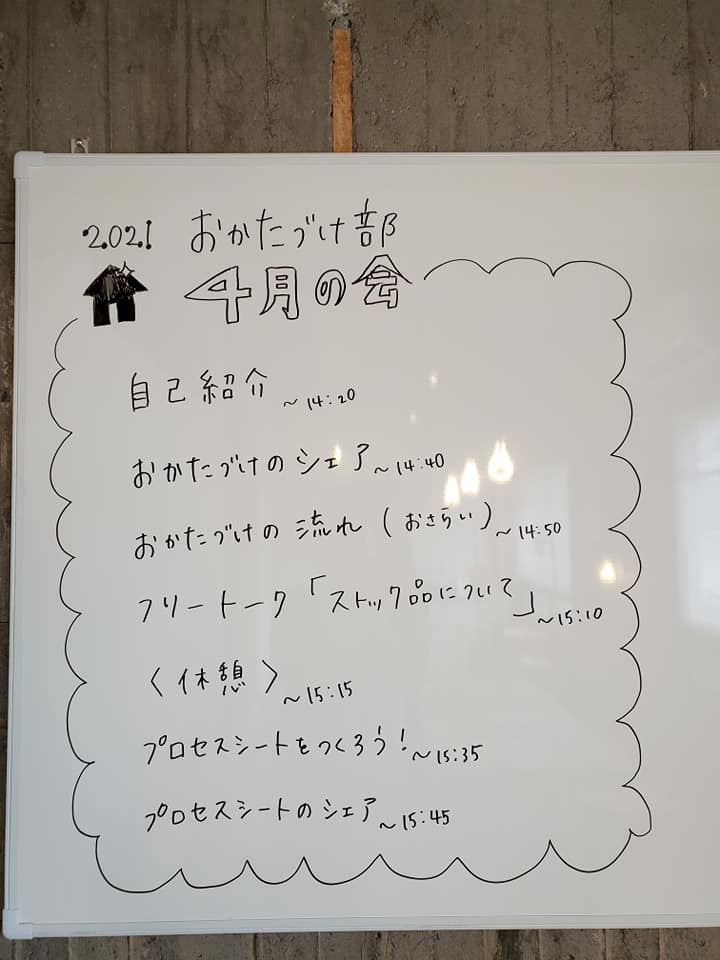 2021 おかたづけ部
4月の会
自己紹介 ~14:20
おかたづけのシェア ~14:40
おかたづけの流れ (おさらい) ~14:50
フリートーク「ストック品について」 ~15:10
〈休憩〉 ~15:15
プロセスシートをつくろう! ~15:35
プロセスシートのシェア ~15:45